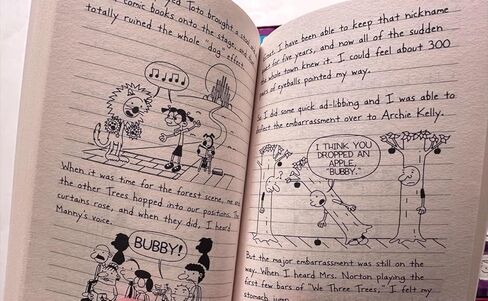 Toto brought a
comic books onto the stage, and
totally ruined the whole "dog" effect.
When it was time for the forest scene, me and
the other Trees hopped into our positions. The
curtains rose, and when they did, I heard
Manny's voice.
BUBBY!
I have been able to keep that nickname
for five years, and now all of the sudden
whole town knew it. I could feel about 300
of eyeballs pointed my way.
I did some quick ad-libbing and I was able to
the embarrassment over to Archie Kelly.
I THINK YOU
DROPPED AN
APPLE,
"BUBBY."
But the major embarrassment was still on the
way. When I heard Mrs. Norton playing the
first few bars of "We Three Trees," I felt my
stomach jump.